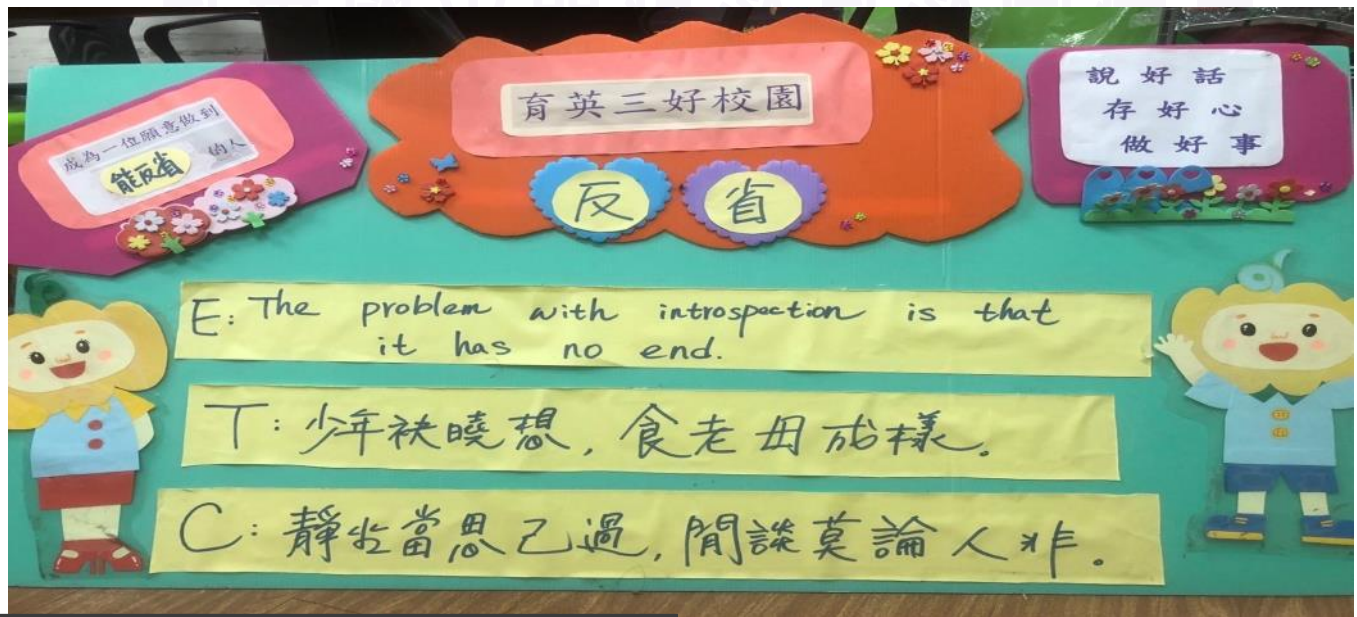 成為一位願意做到
能反省 的人
育英三好校園
反省
說好話
存好心
做好事
E: The problem with introspection is that
it has no end.
T: 少年袂曉想, 食老毋成樣。
C: 靜坐當思己過, 閒談莫論人非。